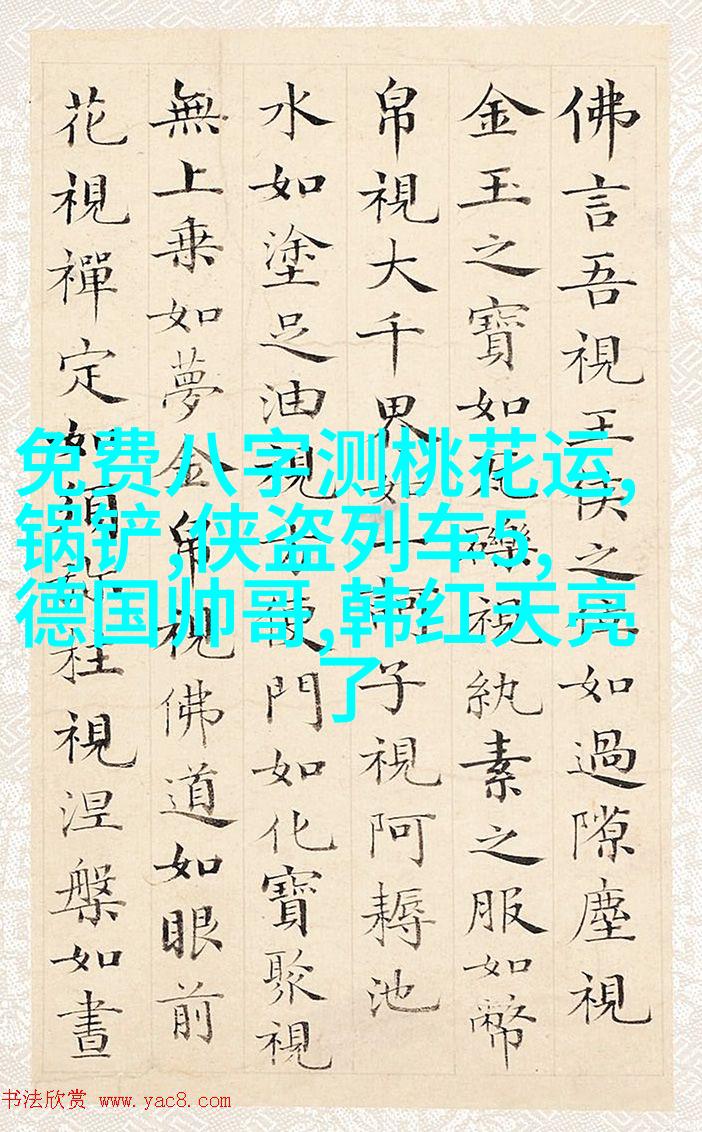 佛言吾視王侯之如過隙塵視
金玉之寶如瓦礫視紈素之服如幣
帛視大千界如一訶子視阿耨池
水如塗足油視方便門如化寶聚視
無上乘如夢金帛視佛道如眼前
花視禪定如須弥柱視涅槃如晝
免费八字测桃花运,
锅铲,侠盗列车5,
德国帅哥,韩红天亮
了
书法欣赏 www.yac8.com